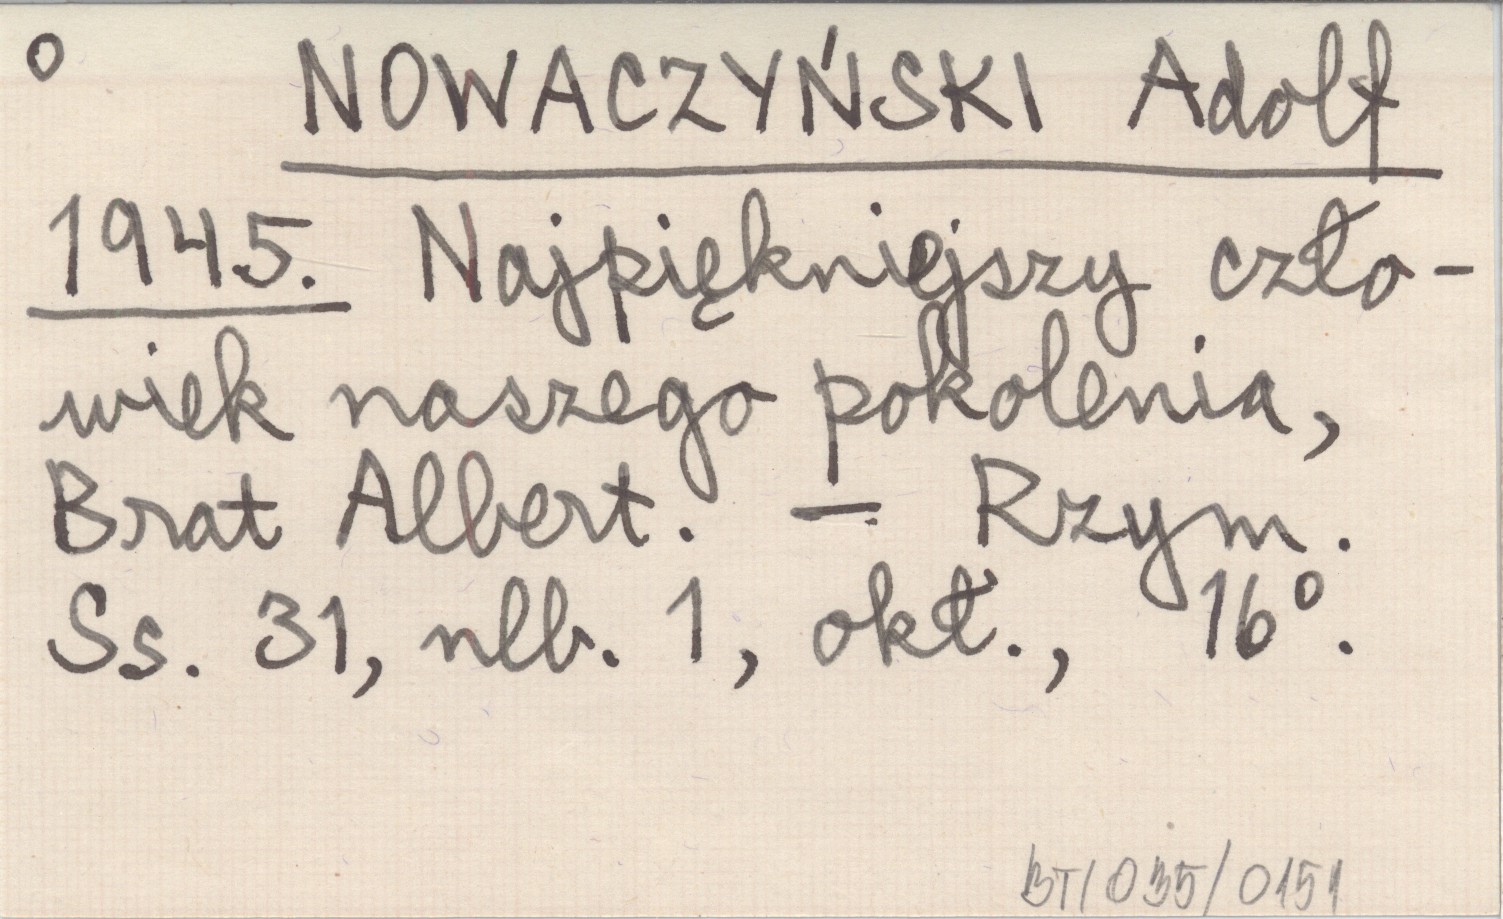 o NOWACZYŃSKI Adolf
1945. Najpiękniejszy czło-
wiek naszego pokolenia,
Brat Albert. — Rzym.
Ss. 31, nlb. 1, okł., 16°.
BT/035/0151